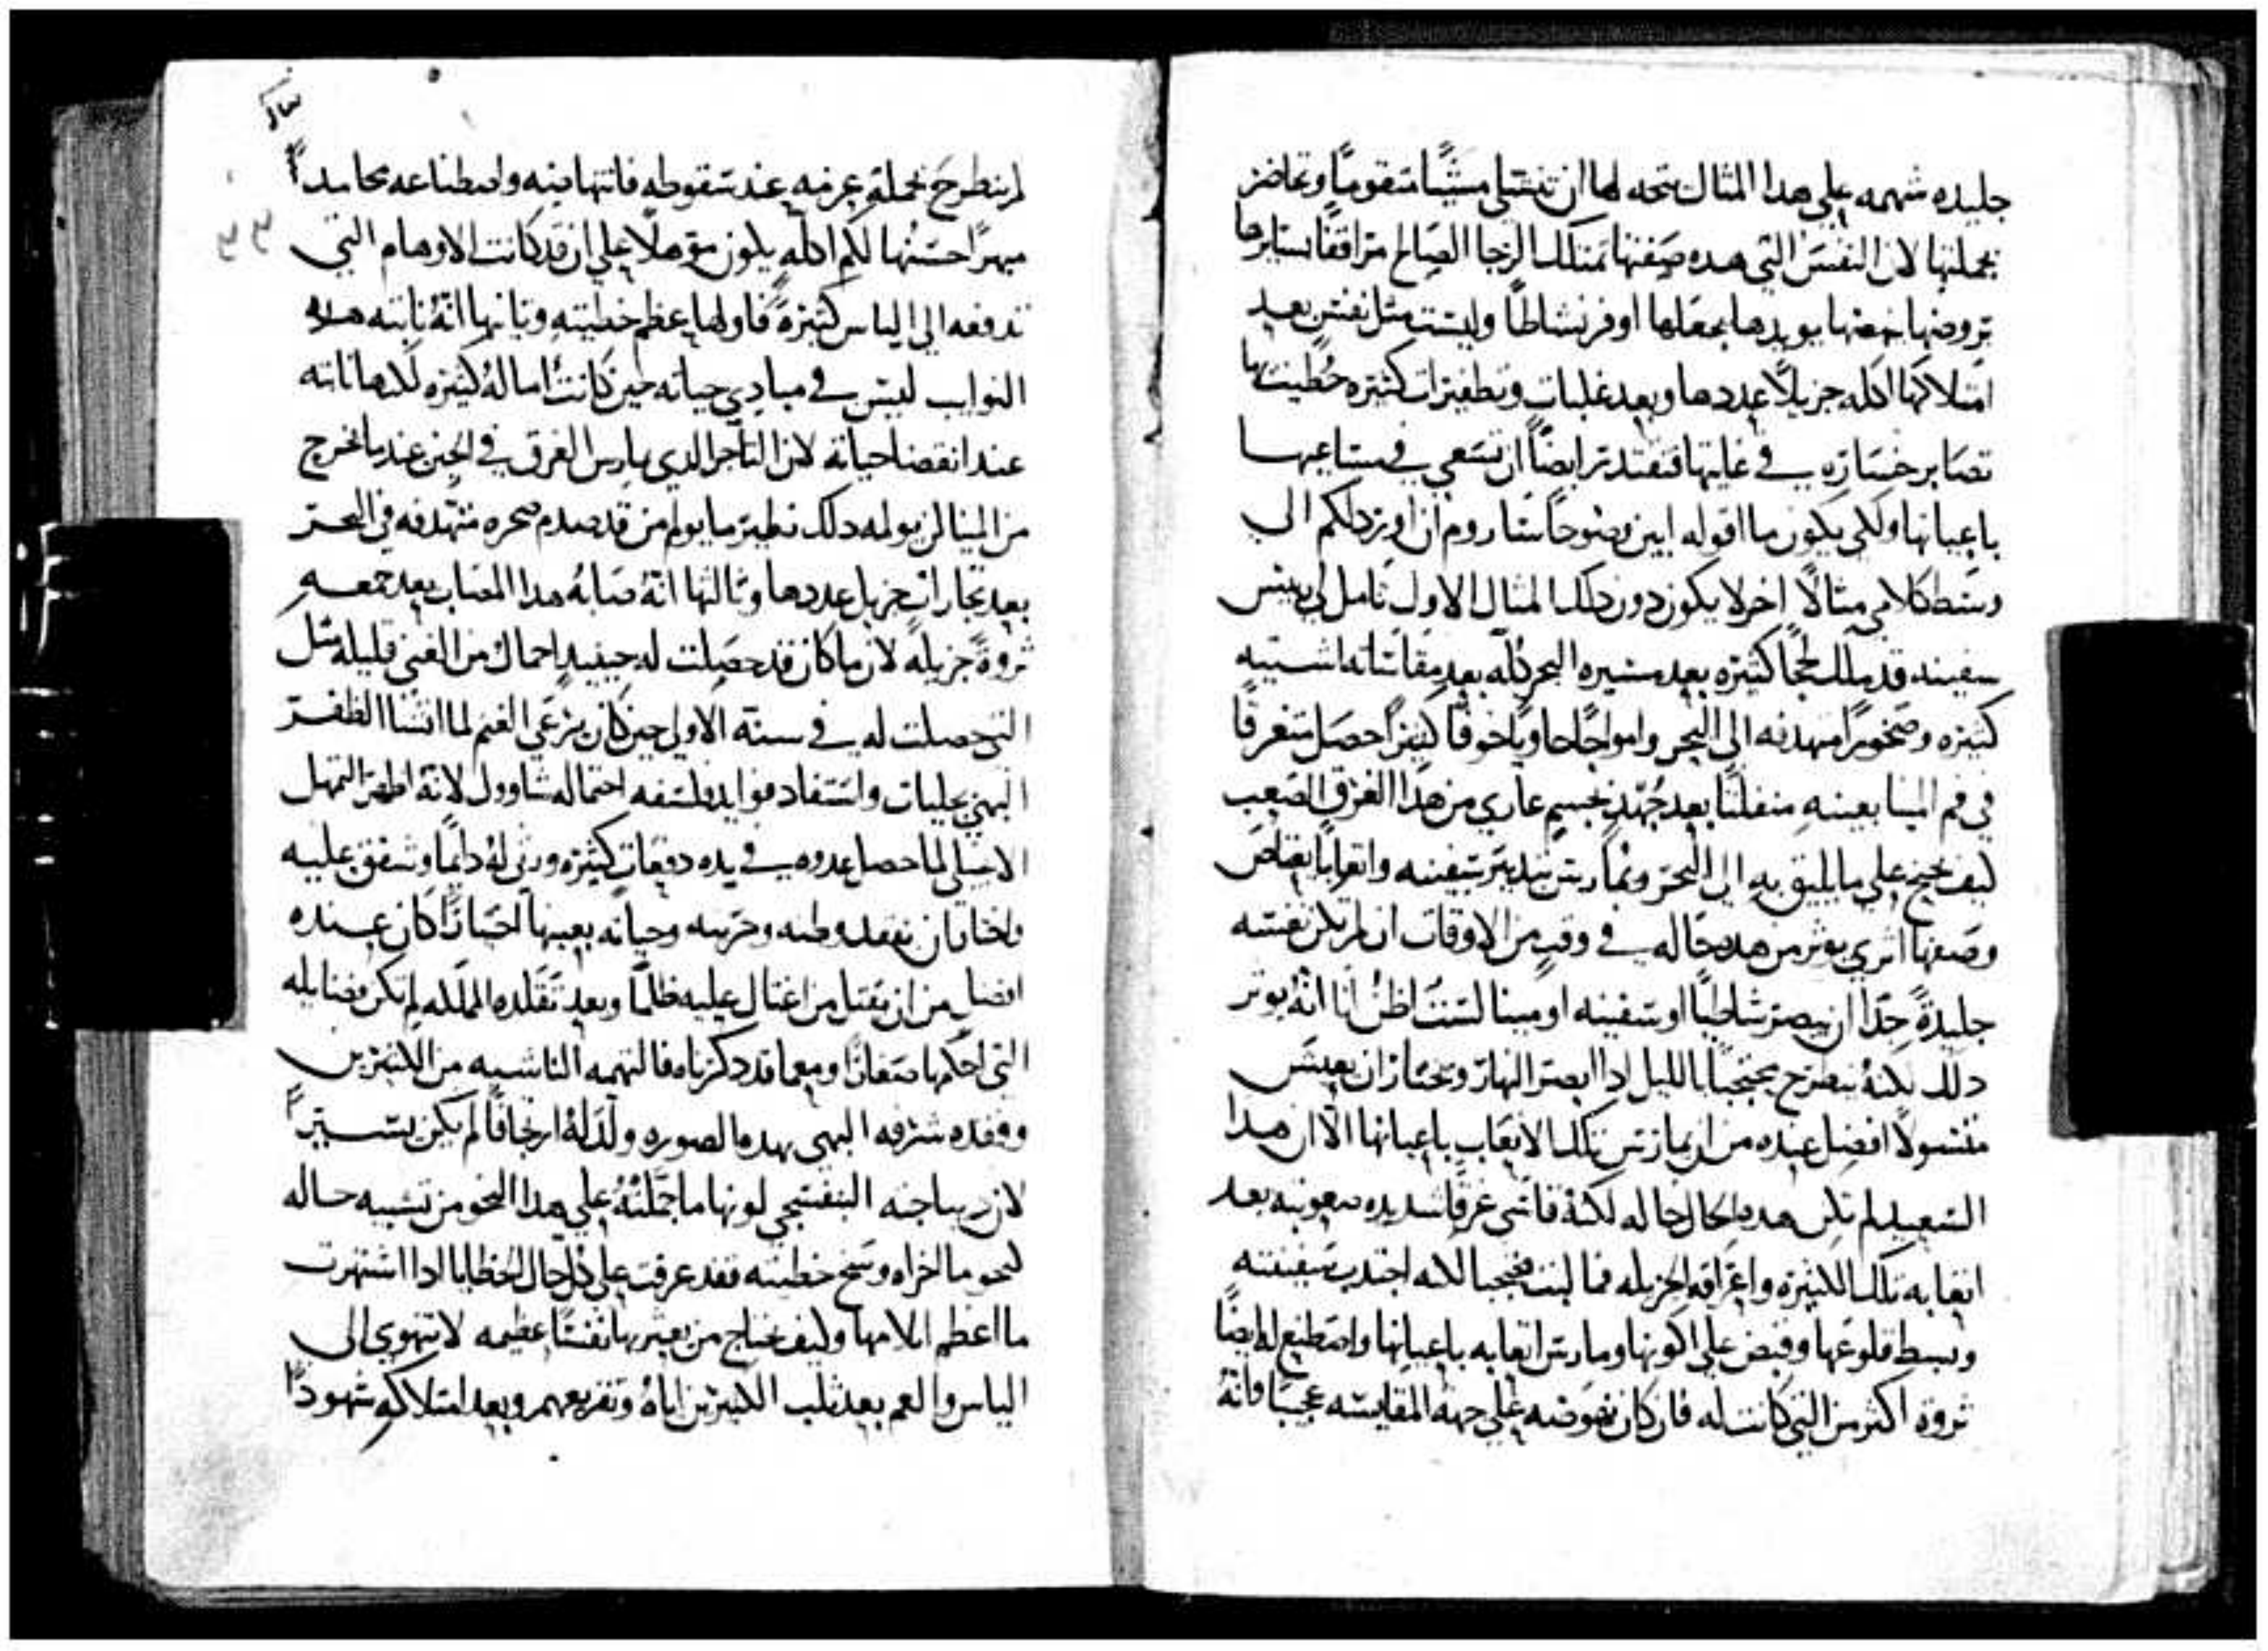 جليده شهمه علي هدا المثال يتجه لها ان تنتشي منشيًا متقومًا وتحاضر
بجملتها لان النفس التي هده صفتها تمتلك الرجا الصالح مترافقًا سايرها
يروضها ينهضها يويدها يجعلها اوفر نشاطًا وليست مثل نفس بعد
امتلاكها اكله جزيلًا عددها وبعد غلبات وتظفيرات كثيره خطيتها
تصابر خسارةً في غايتها فتقتدر ايضًا ان تسعي في مساعيها
باعيانها ولكي يكون ما اقوله ابين وضوحًا ساروم ان اورد لكم الي
وسط كلامي مثالًا اخر لا يكون دون دلك المثال الاول تامل لي ريس
سفينه قد سلك لججًا كثيره بعد مسيره البحر كله بعد مقاساته اشتيه
كثيره وصخورًا متهدفه الي البحر وامواجًا حاويًا خوفًا كثيرًا حصل متغرقًا
في فم المينا بعينهِ منفلتًا بعد جُهدٍ بجسمٍ عاري من هدا الغرق الصعب
كيف يجنح علي ما يليق به الي البحر وتمارس تدبير سفينته واتعابًا يعتاض
وصفها اتري يوثر من هده حاله في وقتٍ من الاوقات ان لم تكن نفسه
جليدةً جدًا ان يبصر شاطيًا او سفينه او مينا لست اظن انا انهُ يوثر
دلك لكنهُ ينطرح محتجبًا بالليل ادا ابصر النهار ويختار ان يعيش
متسولًا افضل عنده من ان يمارس تلك الاتعاب باعيانها الا ان هدا
السعيد لم تكن هده الحال حاله لكنهُ قاسي غرقًا شديده صعوبته بعد
اتعابه تلك الكثيرة واعراقه الجزيله فما لبث محتجبا لكنه اجتدب سفينته
وبسط قلوعها وقبض علي اكونها ومارس اتعابه باعيانها واصطنع له ايضًا
ثروةً اكثر من التي كانت له فان كان نهوضه علي جهة المقايسه عجبًا فانهُ
لم ينطرح بجملة عزمه عند سقوطه فانتهاضه واصطناعه محامدًا
مبهرًا حسنها لكم اكلهٍ يكون موهلًا علي ان قد كانت الاوهام التي
تدفعه الي الياس كثيرةً فاولها عظم خطيته وثانيها انهُ نابته هده
النوايب ليس في مبادي حياته حين كانت اماله كثيره لكنها نابته
عند انقضا حياته لان التاجر الدي يمارس الغرق في الحين عند ما يخرج
من المينا لن يولمه دلك نظير ما يولم من قد صدم صخره متهدفه في البحر
بعد تجاراتٍ جزيل عددها وثالثها انهُ صابهُ هدا المصاب بعد جمعهِ
ثروةً جزيلةً لان ما كان قد حصلت له حينيدٍ احمال من الغني قليله مثل
التي حصلت له في سنته الاولي حين كان يرعي الغنم لما انشا الظفر
البهي بجليات واستفاد فوايد فلسفه احتماله شاوول لانه اظهر التمهل
الانجيلي لما حصل عدوه في يده دفعاتٍ كثيره ورثي لهُ دايمًا وشفق عليه
واختار ان يفقد وطنه وحريته وحياته بعينها اختيارًا كان عنده
افضل من ان يقتل من اغتال عليه ظلمًا وبعد تقلده المملكه لم تكن فضايله
التي احكمها صغارًا ومع ما قد دكرناه فالتهمه الناشيه من الكثيرين
وفقده شرفه البهي بهده الصوره ولدلهُ ارتجافًا لم يكن يسيرًا
لان ديباجته البنفسجي لونها ما جملتهُ علي هدا النحو من تشبيه حاله
كنحو ما اخراه وسخ خطيته فقد عرفت علي كل حال الخطايا ادا اشتهرت
ما اعظم ايلامها وكيف يحتاج من يعير بها نفسًا عظيمه لا تهوي الي
الياس والغم بعد ثلب الكثيرين اياهُ وتقريعهم وبعد امتلاكه شهودًا